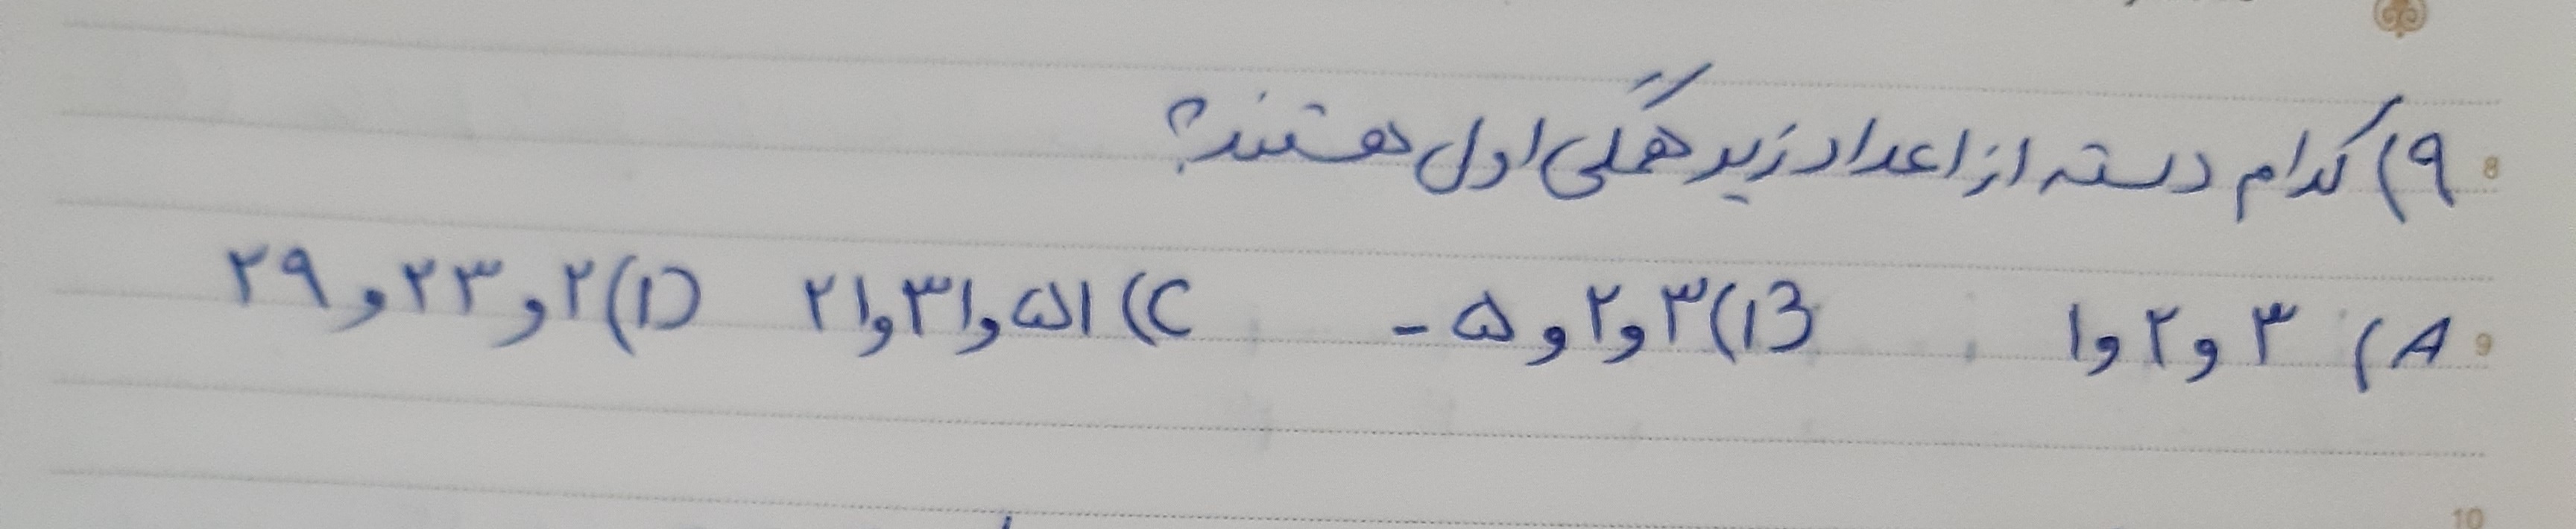 ۹) کدام دسته از اعداد زیر همگی اول هستند؟
A) ۳ و ۲ و ۱ B) ۳ و ۲ و ۵- C) ۵۱ و ۳۱ و ۲۱ D) ۲ و ۲۳ و ۲۹
8
9
10